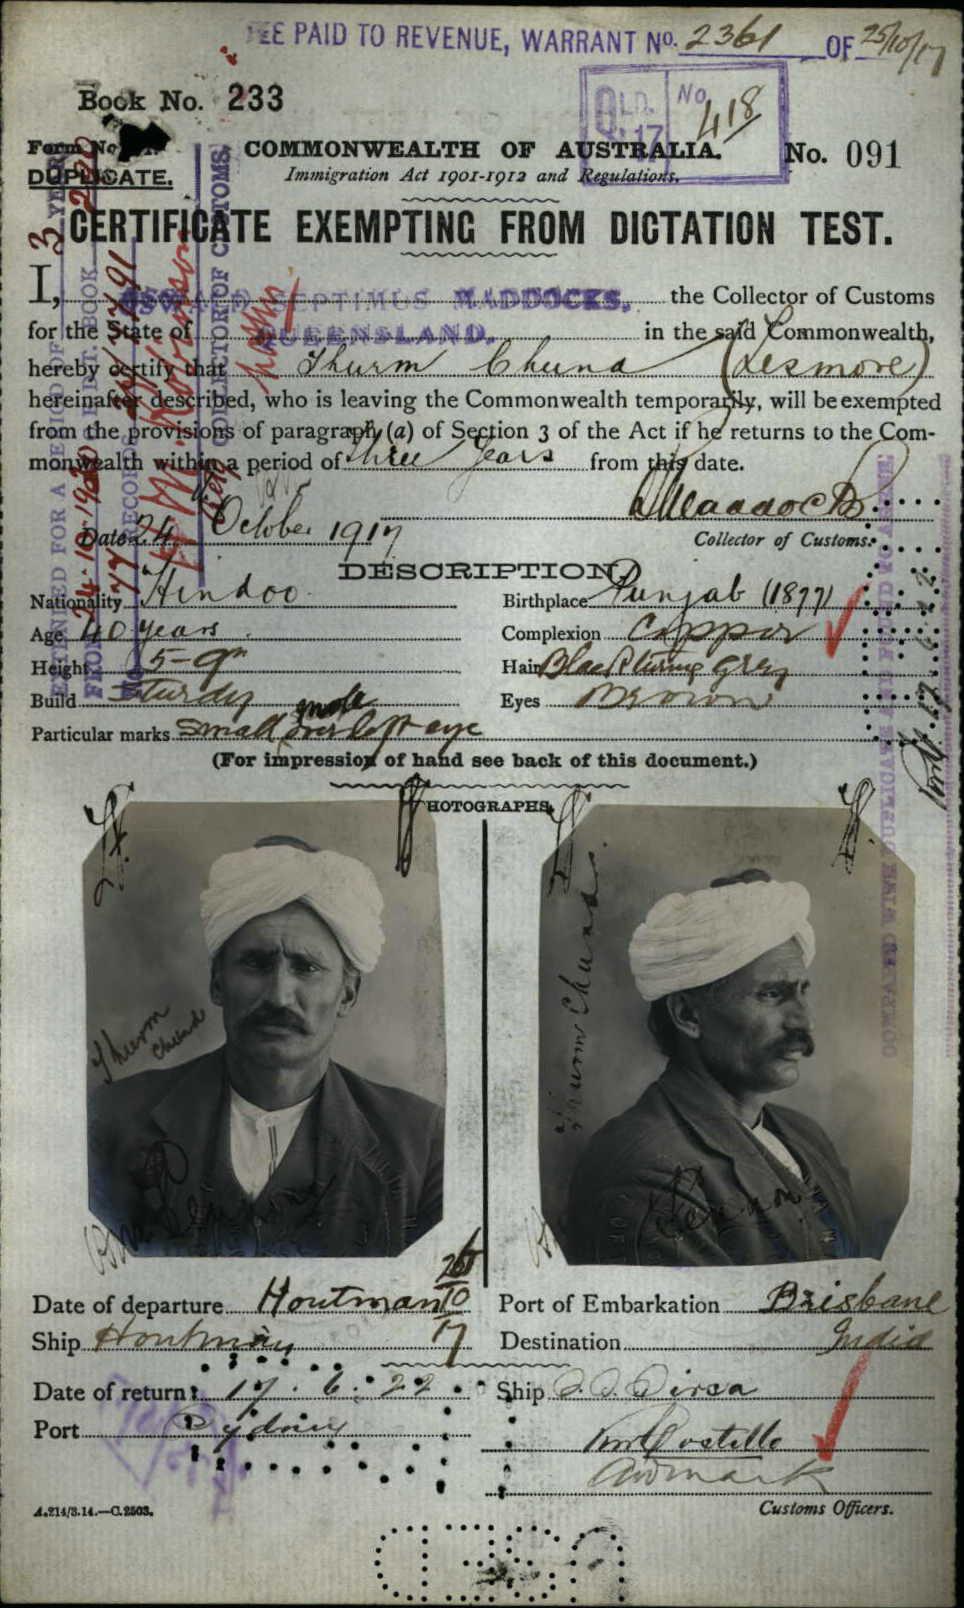 FEE PAID TO REVENUE, WARRANT No. 2361 OF 25/10/17
Book No. 233
QLD. No 418
17
Form No.
DUPLICATE.
COMMONWEALTH OF AUSTRALIA.
No. 091
Immigration Act 1901-1912 and Regulations.
CERTIFICATE EXEMPTING FROM DICTATION TEST.
I, OSWALD SEPTIMUS MADDOCKS, the Collector of Customs
for the State of QUEENSLAND, in the said Commonwealth,
hereby certify that Thurm Chund (Lesmore)
hereinafter described, who is leaving the Commonwealth temporarily, will be exempted
from the provisions of paragraph (a) of Section 3 of the Act if he returns to the Com-
monwealth within a period of three years from this date.
Date 24 October 1917
OMaddocks
Collector of Customs.
DESCRIPTION.
Nationality Hindoo
Birthplace Punjab (1877)
Age 40 years
Complexion Copper
Height 5-9
Hair Black turning grey
Build Sturdy
Eyes Brown
Particular marks small mole over left eye
(For impression of hand see back of this document.)
PHOTOGRAPHS.
Thurm Chund
Thurm Chund
Date of departure Houtman 26/10/17
Port of Embarkation Brisbane
Ship Houtman
Destination India
Date of return 17.6.22
Ship S.S. Dirca
Port Sydney
A.214/3.14.—C.2503.
Customs Officers.
EXTENDED FOR A PERIOD OF 3 YEARS
FROM 24.10.1920
COLLECTOR OF CUSTOMS.
COMPARED WITH DUPLICATE AND FOUND TO AGREE